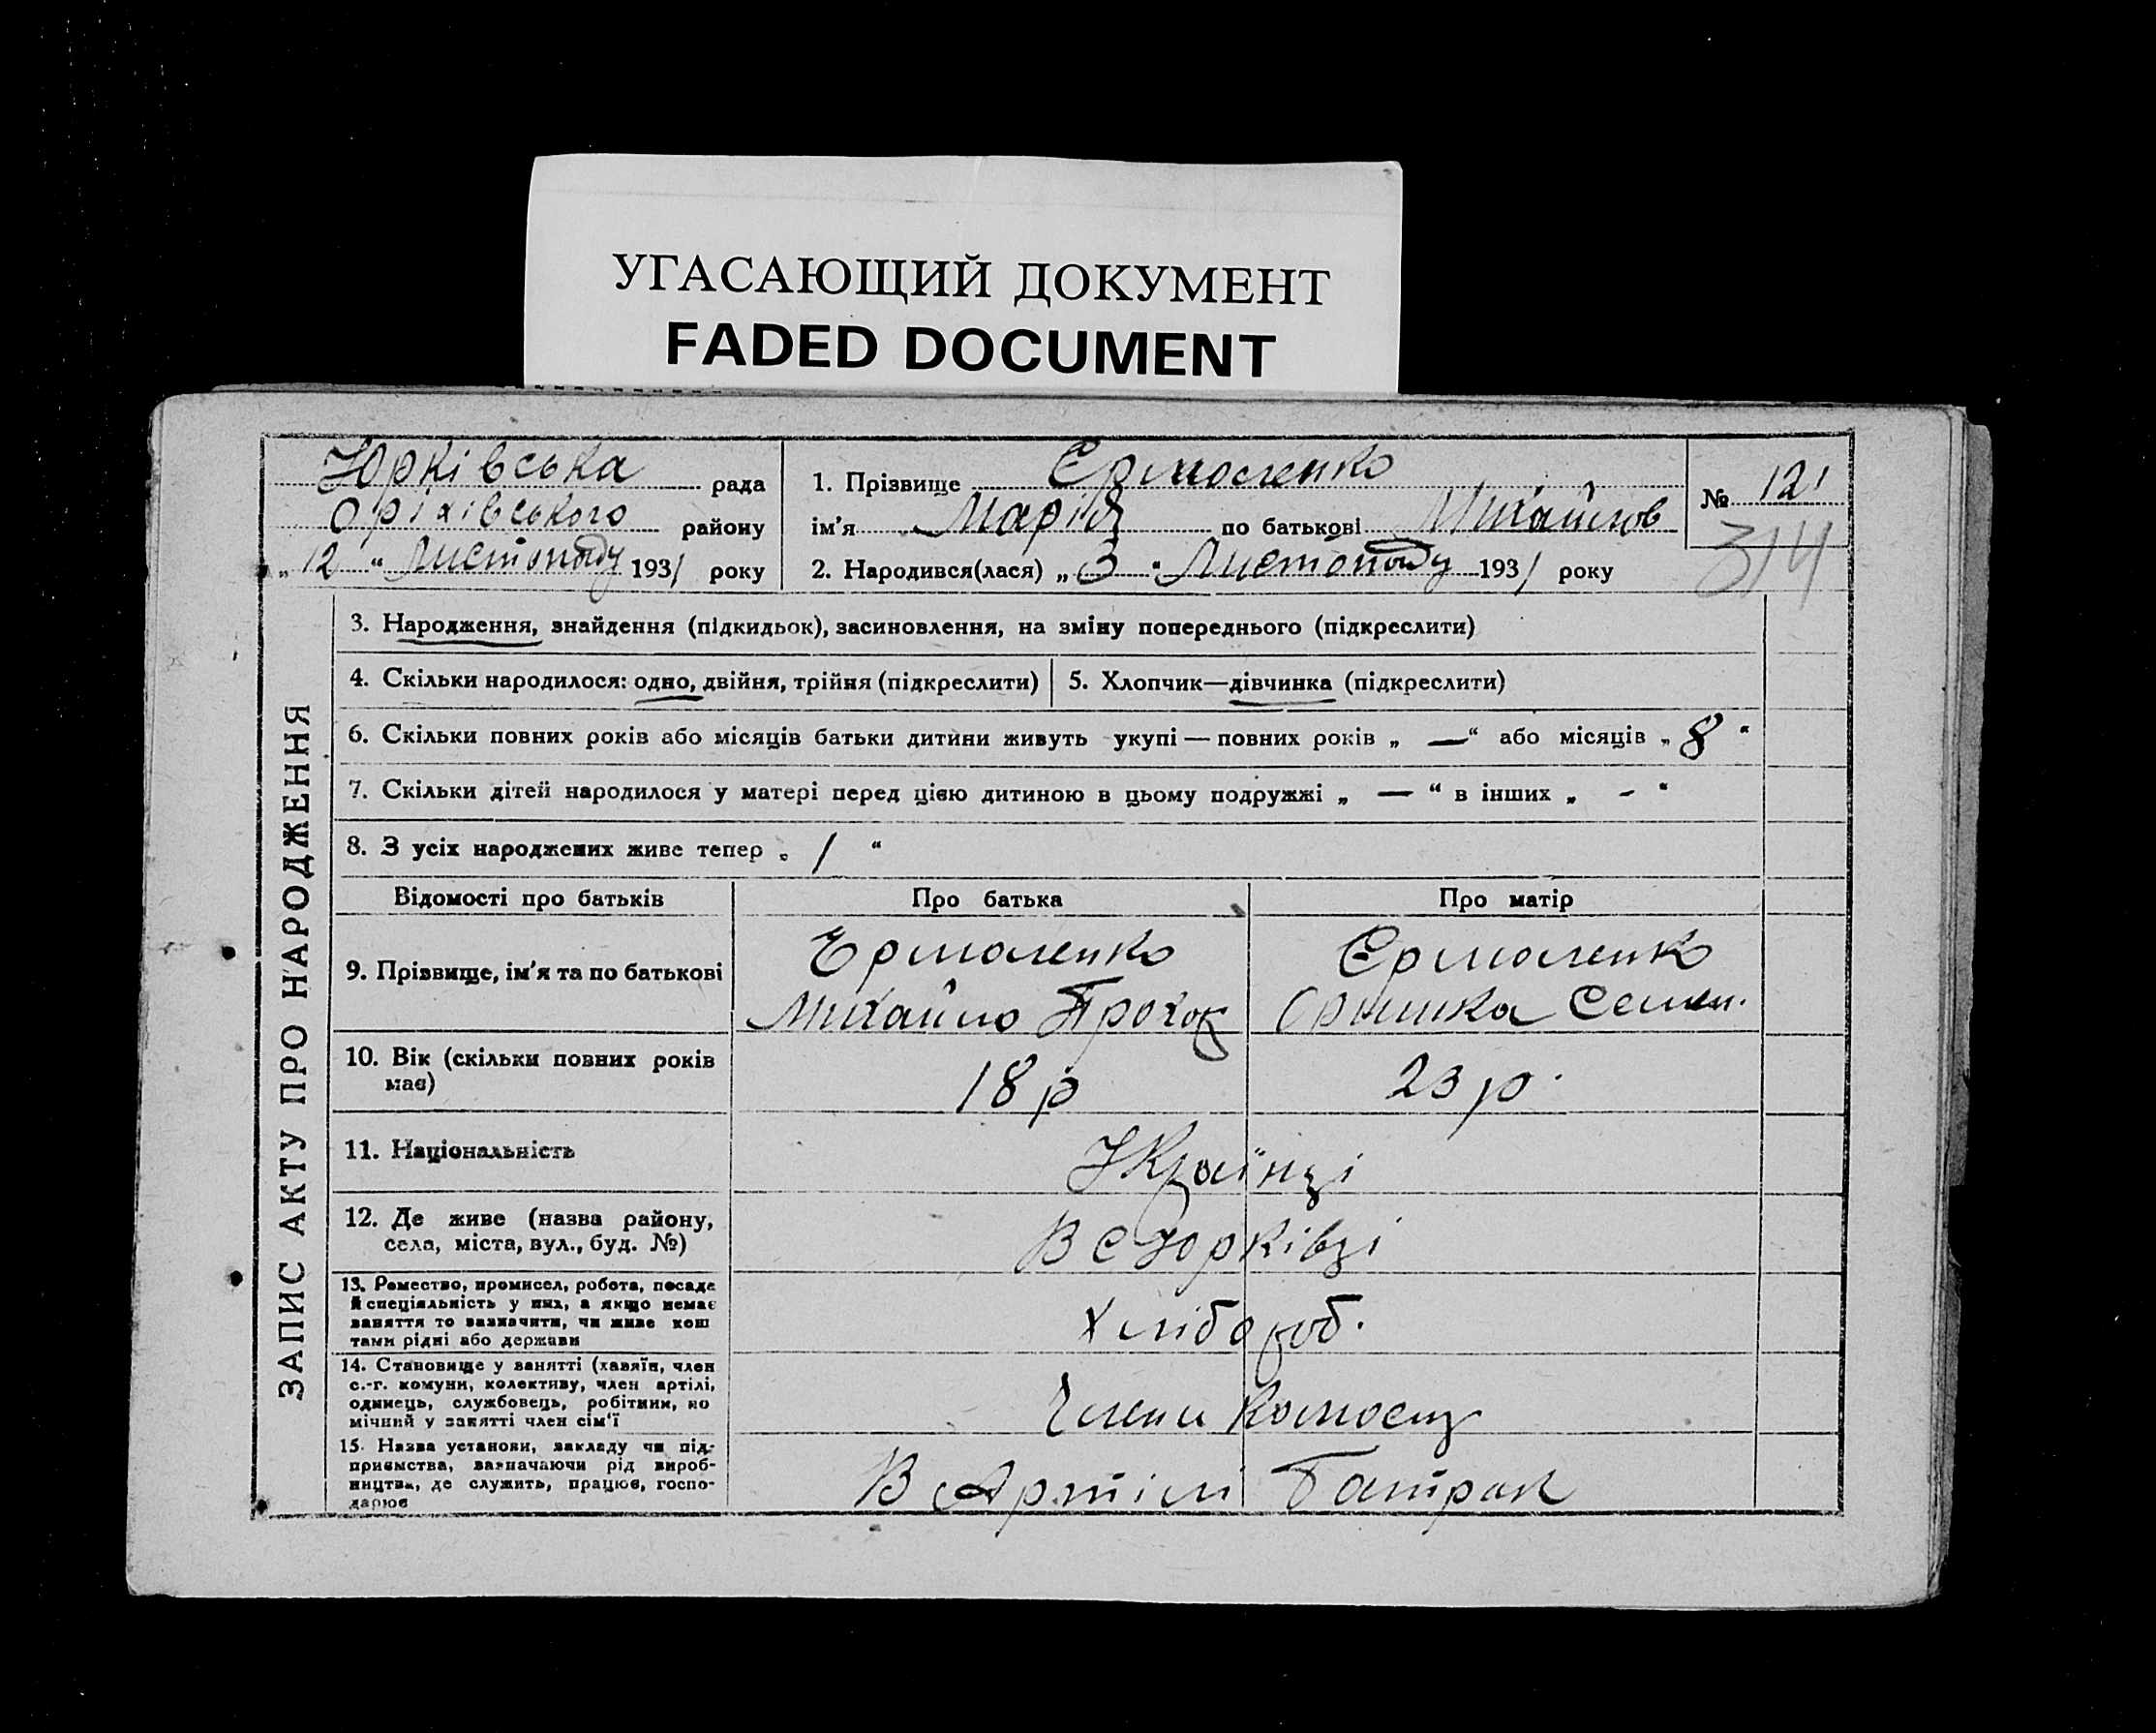 УГАСАЮЩИЙ ДОКУМЕНТ
FADED DOCUMENT
Юрківська рада
Оріхівського району
„ 12 “ Листопаду 1931 року
1. Прізвище Єрмоленко
ім’я Марія по батькові Михайлов
2. Народився(лася) „ 3 “ Листопаду 1931 року
№ 121
314
ЗАПИС АКТУ ПРО НАРОДЖЕННЯ
3. Народження, знайдення (підкидьок), засиновлення, на зміну попереднього (підкреслити)
4. Скільки народилося: одно, двійня, трійня (підкреслити)
5. Хлопчик—дівчинка (підкреслити)
6. Скільки повних років або місяців батьки дитини живуть укупі — повних років „ — “ або місяців „ 8 “
7. Скільки дітей народилося у матері перед цією дитиною в цьому подружжі „ — “ в інших „ - “
8. З усіх народжених живе тепер „ 1 “
Відомості про батьків Про батька Про матір
9. Прізвище, ім’я та по батькові
Єрмоленко
Михайло Прохор
Єрмоленко
Оришка Семен.
10. Вік (скільки повних років
має)
18 р
23 р.
11. Національність
Українці
12. Де живе (назва району,
села, міста, вул., буд. №)
В с Юрківці
13. Ремество, промисел, робота, посада
й спеціяльність у них, а якщо немає
заняття то зазначити, чи живе кош
тами рідні або держави
Хлібороб.
14. Становище у занятті (хазяїн, член
с.-г. комуни, колективу, член артілі,
одинець, службовець, робітник, по
мічний у занятті член сім’ї
Члени
15. Назва установи, закладу чи під-
приємства, зазначаючи рід вироб-
ництва, де служить, працює, госпо-
дарює
В Артілі Батрак